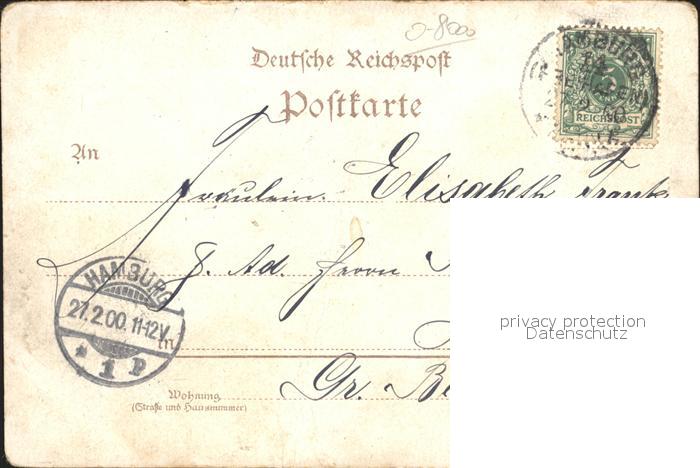 0-8000
Deutsche Reichspost
Postkarte
HAMBURG
5
REICHSPOST
An
Fräulein Elisabeth Frank
p. Ad. Herrn
HAMBURG
27.2.00.11-12V.
* 1 P
in
Gr. Be
Wohnung
(Straße und Hausnummer)
privacy protection
Datenschutz